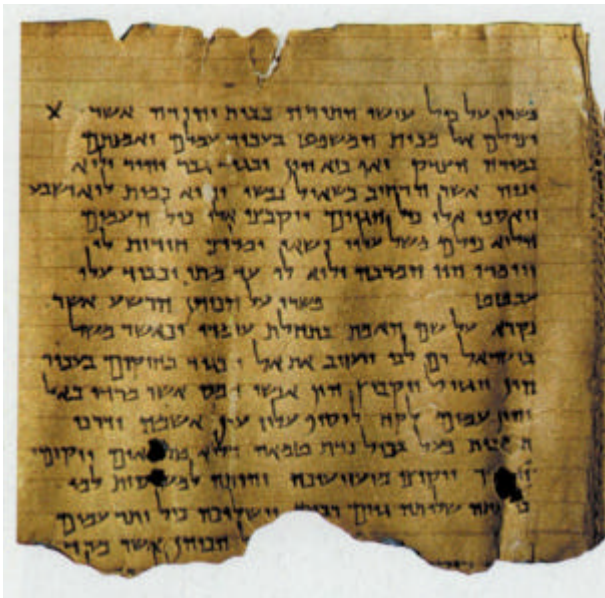 פשרו על כול עושי התורה בבית יהודה אשר X
יצילם אל מבית המשפט בעבור עמלם ואמנתם
במורה הצדק ואף כיא הון יבגוד גבר יהיר ולוא
ינוה אשר הרחיב כשאול נפשו והוא כמות לוא ישבע
ויאספו אלו כול הגוים ויקבצו אלו כול העמים
הלוא כולם משל עליו ישאו ומליצי חידות לו
ויומרו הוי המרבה ולוא לו עד מתי יכביד עלו
עבטט פשרו על הכוהן הרשע אשר
נקרא על שם האמת בתחלת עומדו וכאשר משל
בישראל רם לבו ויעזוב את אל ויבגוד בחוקים בעבור
הון ויגזול ויקבוץ הון אנשי חמס אשר מרדו באל
והון עמים לקח לוסיף עליו עון אשמה ודרכי
פעל בכול נדת טמאה הלוא ויקומו
ויקיצו מזעזעיכה והייתה למו
שלותה גוים רבים וישלוכה כול יתר עמים
הכוהן אשר מרד